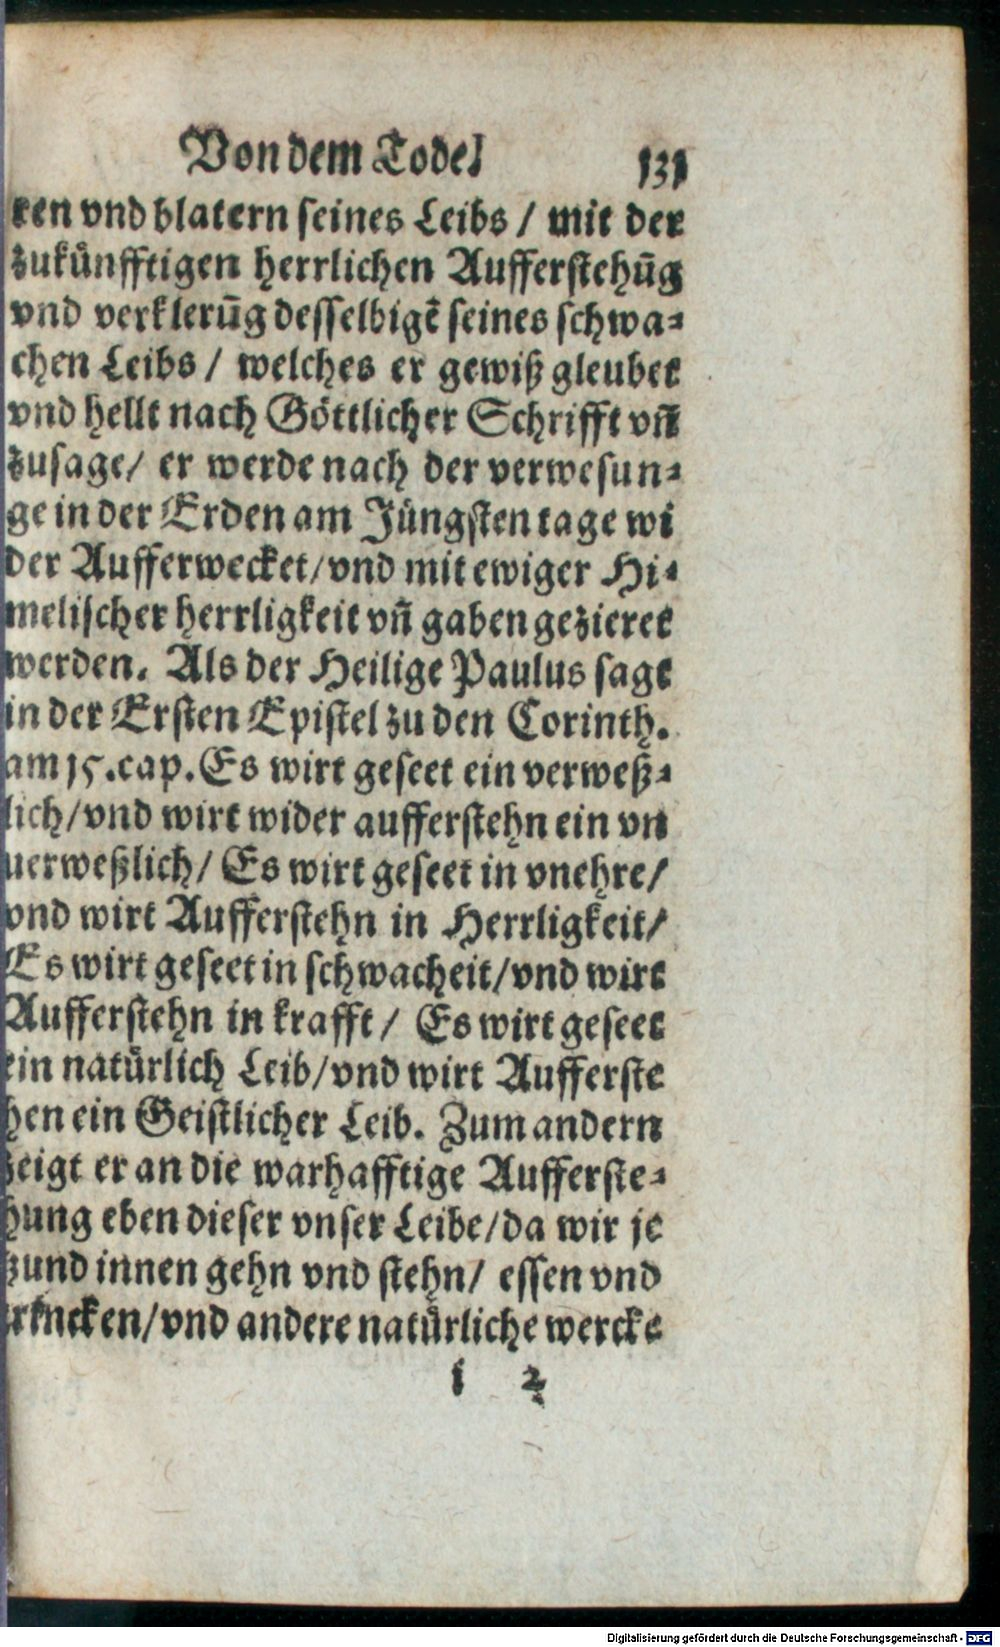 Von dem Tode/ 131
ren vnd blatern seines Leibs / mit der
zukünfftigen herrlichen Aufferstehūg
vnd verklerūg desselbigē seines schwa⸗
chen Leibs / welches er gewiß gleubet
vnd hellt nach Göttlicher Schrifft vñ
zusage/ er werde nach der verwesun⸗
ge in der Erden am Jüngsten tage wi
der Aufferwecket/vnd mit ewiger Hi⸗
melischer herrligkeit vñ gaben gezieret
werden. Als der Heilige Paulus sagt
in der Ersten Epistel zu den Corinth.
am 15.cap. Es wirt geseet ein verweß⸗
lich/vnd wirt wider aufferstehn ein vn
uerweßlich/ Es wirt geseet in vnehre/
vnd wirt Aufferstehn in Herrligkeit/
Es wirt geseet in schwacheit/vnd wirt
Aufferstehn in krafft / Es wirt geseet
ein natürlich Leib/vnd wirt Aufferste
hen ein Geistlicher Leib. Zum andern
zeigt er an die warhafftige Aufferste⸗
hung eben dieser vnser Leibe/da wir je
zund innen gehn vnd stehn/ essen vnd
trincken/vnd andere natürliche wercke
j 2
Digitalisierung gefördert durch die Deutsche Forschungsgemeinschaft - DFG